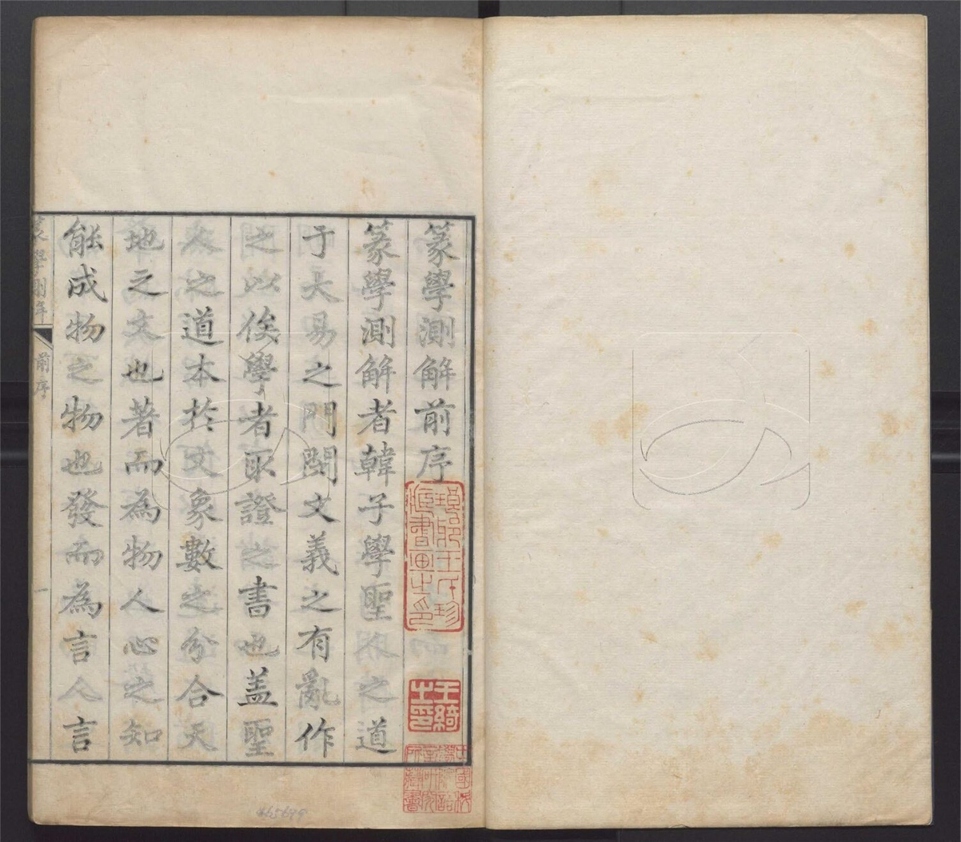 篆學測解前序
篆學測解者韓子學聖人之道
于大易之門閔文義之有亂作
之以俟學者取證之書也盖聖
人之道本於文象數之分合天
地之文也著而為物人心之知
能成物之物也發而為言人言
篆學測解
前序
一
琅邪王氏珍
臧書画之印
王綺
之印
465679